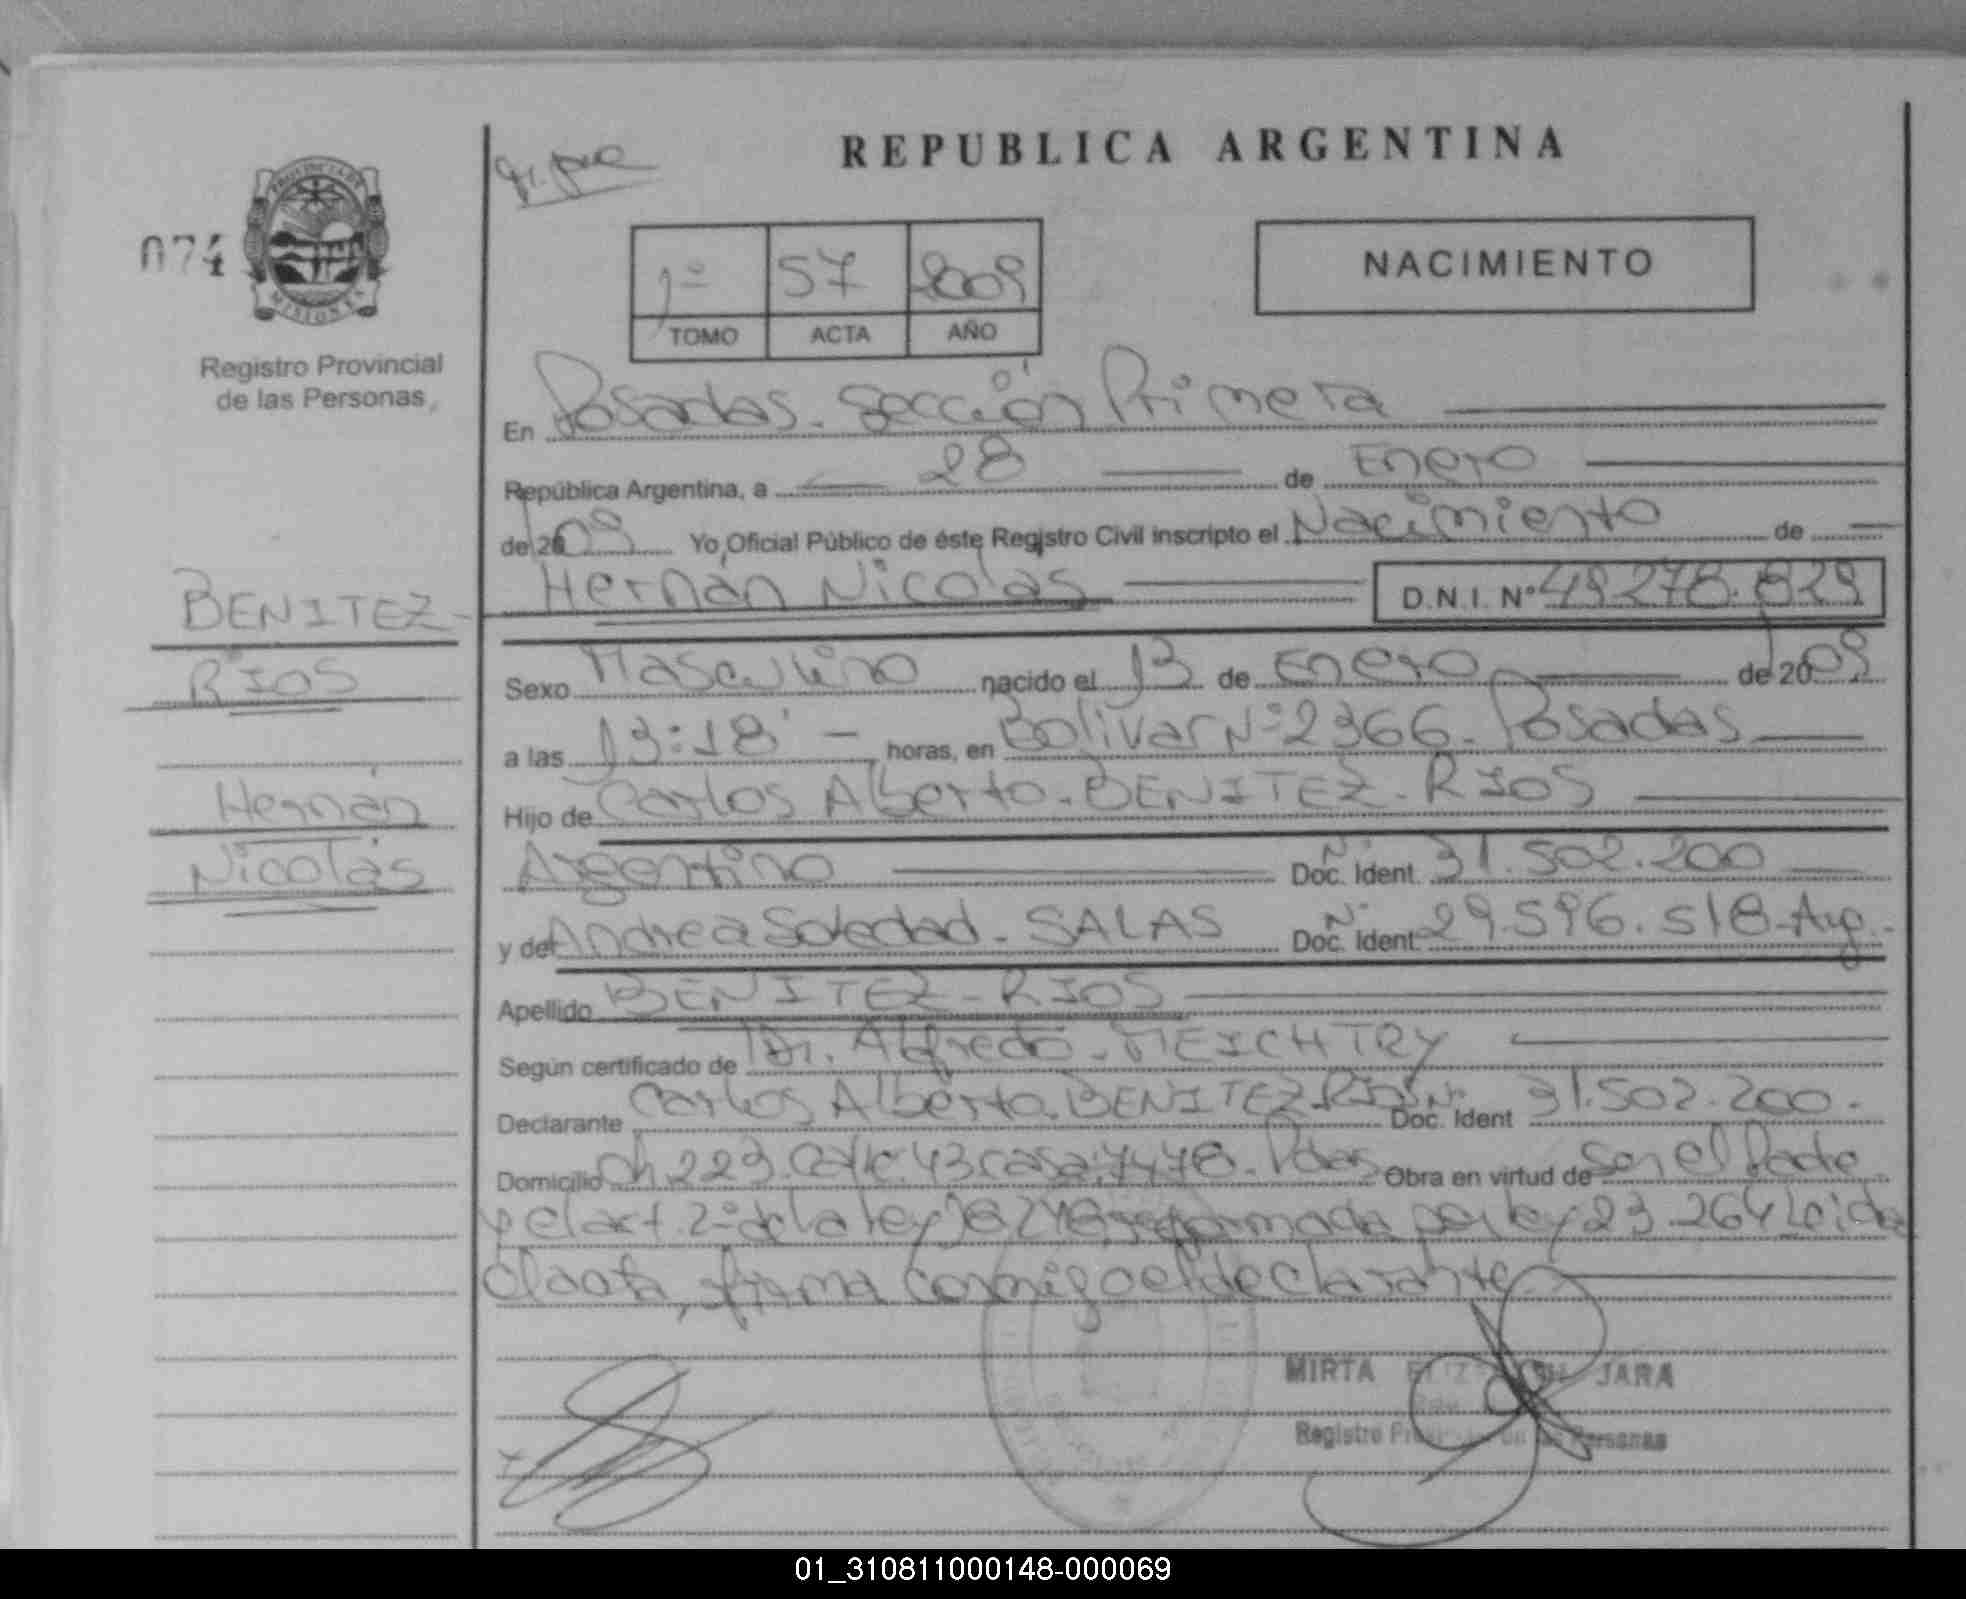 REPUBLICA ARGENTINA
074
PROVINCIA DE
MISIONES
Registro Provincial
de las Personas
1º 57 2009
TOMO ACTA AÑO
NACIMIENTO
En Posadas. Sección Primera
República Argentina, a 28 de Enero
de 2009 Yo, Oficial Público de éste Registro Civil inscripto el Nacimiento de
Hernán Nicolás D.N.I. Nº 49.278.829
BENITEZ-
RIOS
Hernán
Nicolás
Sexo Masculino nacido el 13 de Enero de 2009
a las 13:18' horas, en Bolivar Nº 2366. Posadas
Hijo de Carlos Alberto. BENITEZ. RIOS
Argentino Doc. Ident. Nº 31.502.200
y de Andrea Soledad. SALAS Doc. Ident. Nº 29.596.518-Arg.
Apellido BENITEZ-RIOS
Según certificado de Dr. Alfredo. MEICHTRY
Declarante Carlos Alberto. BENITEZ. RIOS Nº Doc. Ident 31.502.200.
Domicilio Ch. 223. Calle. 43 casa. 7478. Pdas Obra en virtud de Ser el Padre
y el art. 2º de la ley 18.248, reformada por ley 23.264 Leida
el acta, firma conmigo el declarante.
MIRTA JARA
Registro Personas
01_310811000148-000069